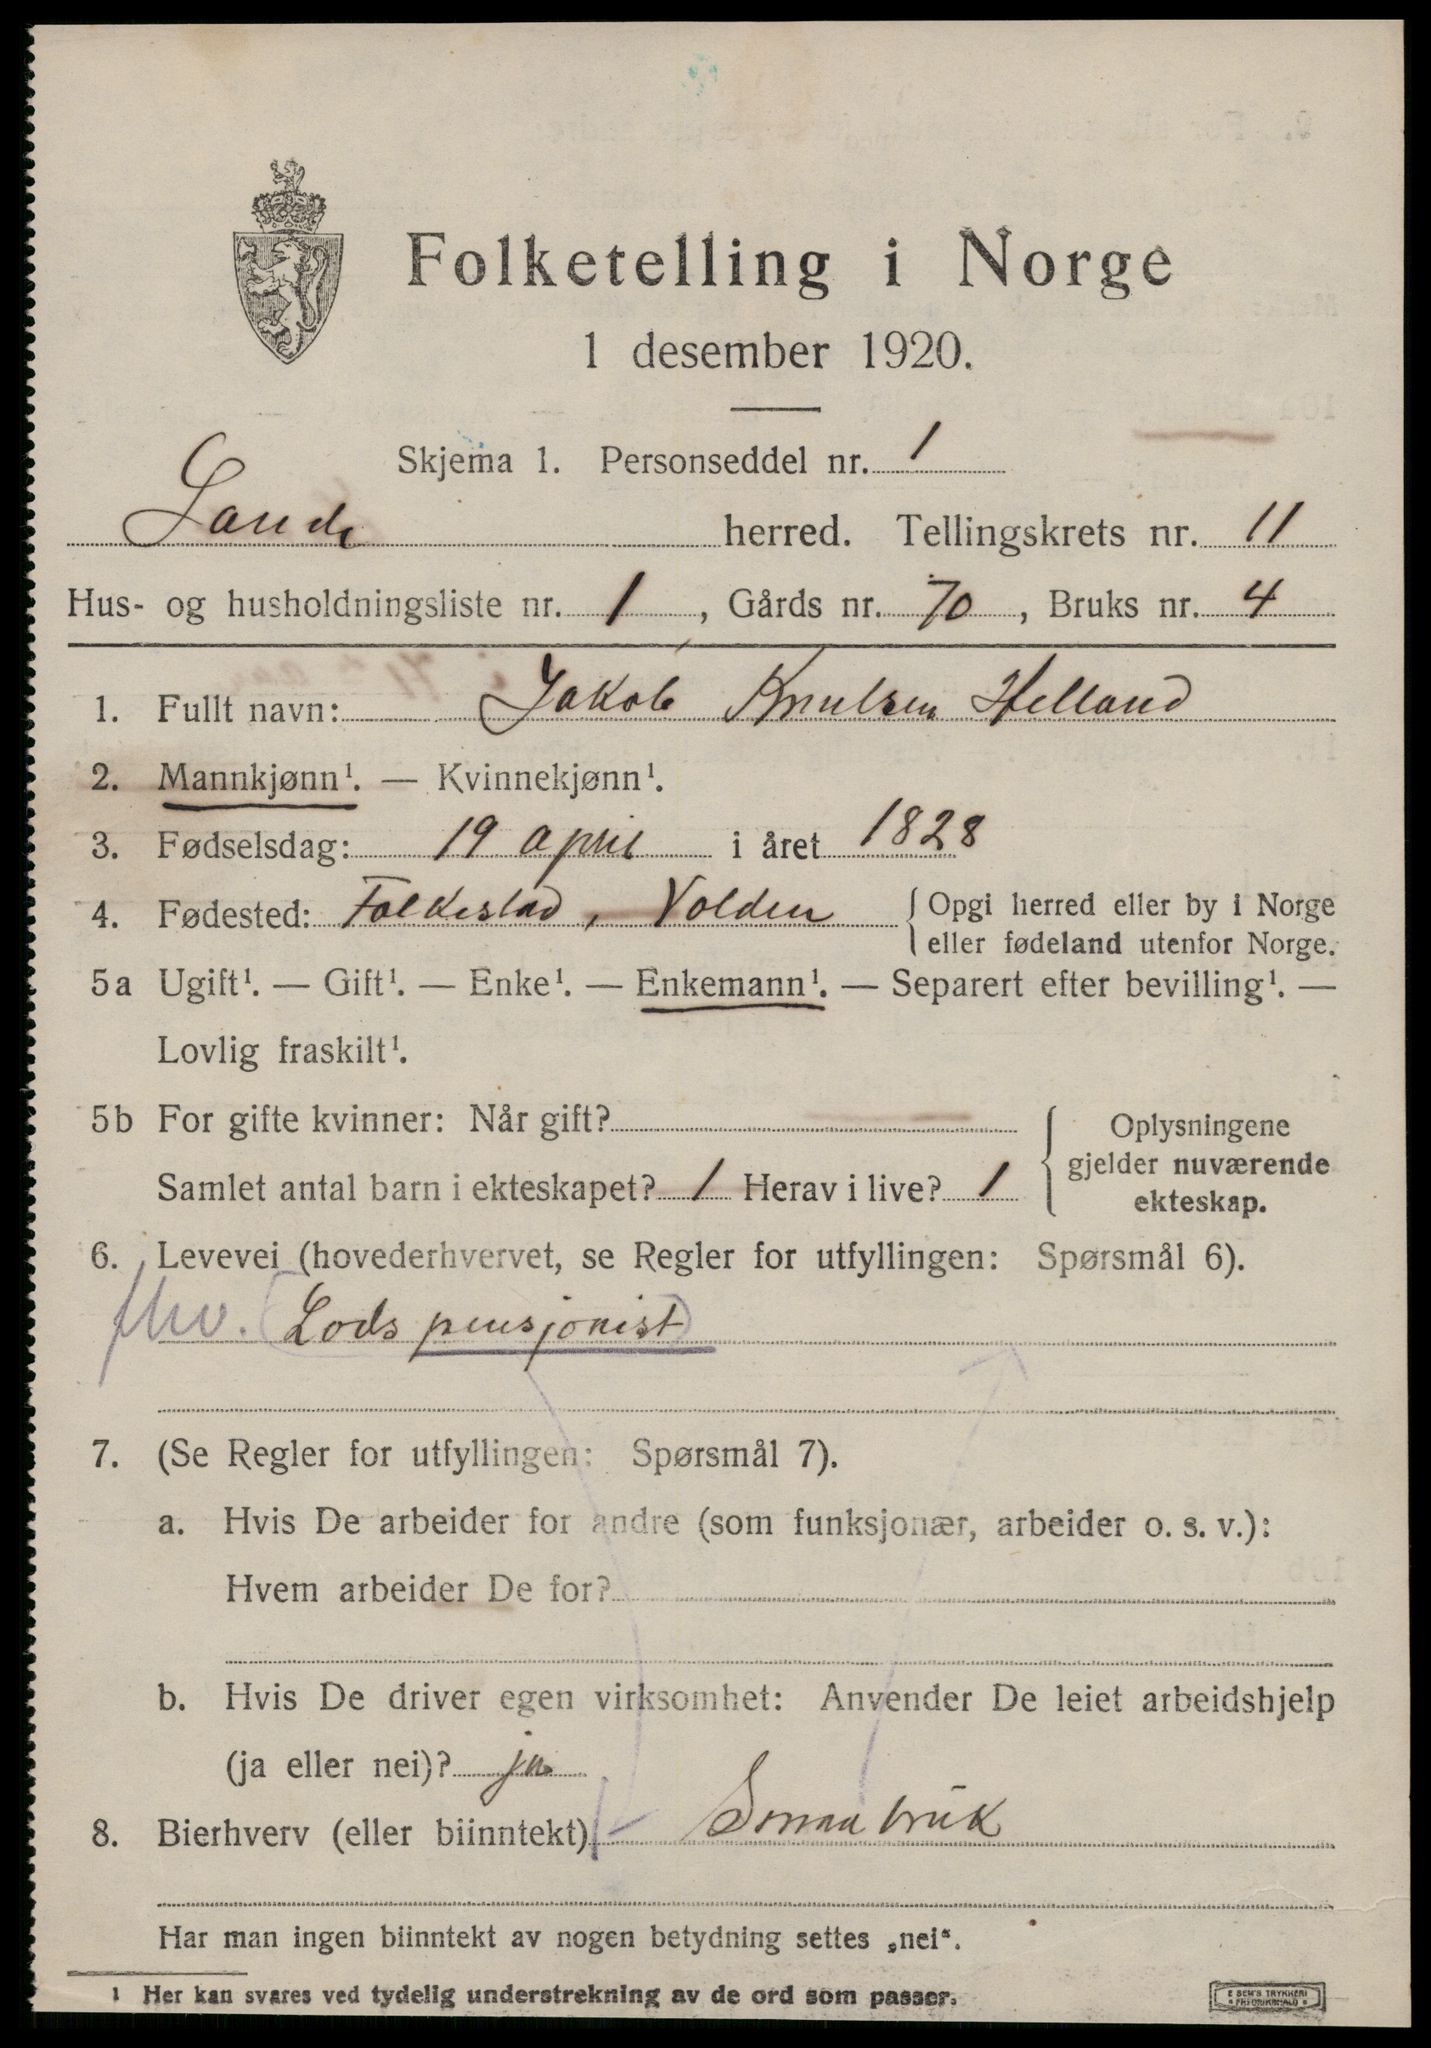 Folketelling i Norge
1 desember 1920.
Skjema 1. Personseddel nr. 1
Sande herred. Tellingskrets nr. 11
Hus- og husholdningsliste nr. 1, Gårds nr. 70, Bruks nr. 4
1. Fullt navn: Jakob Knutsen Helland
2. Mannkjønn¹. — Kvinnekjønn¹.
3. Fødselsdag: 19 april i året 1828
4. Fødested: Folkestad, Volden { Opgi herred eller by i Norge
eller fødeland utenfor Norge.
5a Ugift¹. — Gift¹. — Enke¹. — Enkemann¹. — Separert efter bevilling¹. —
Lovlig fraskilt¹.
5b For gifte kvinner: Når gift? { Oplysningene
gjelder nuværende
Samlet antal barn i ekteskapet? 1 Herav i live? 1
ekteskap.
6. Levevei (hovederhvervet, se Regler for utfyllingen: Spørsmål 6).
fhv. (Lods pensjonist)
7. (Se Regler for utfyllingen: Spørsmål 7).
a. Hvis De arbeider for andre (som funksjonær, arbeider o. s. v.):
Hvem arbeider De for?
b. Hvis De driver egen virksomhet: Anvender De leiet arbeidshjelp
(ja eller nei)? ja
8. Bierhverv (eller biinntekt) Smaabruk
Har man ingen biinntekt av nogen betydning settes „nei“.
1 Her kan svares ved tydelig understrekning av de ord som passer.
E SEM'S TRYKKERI
FREDRIKSHALD